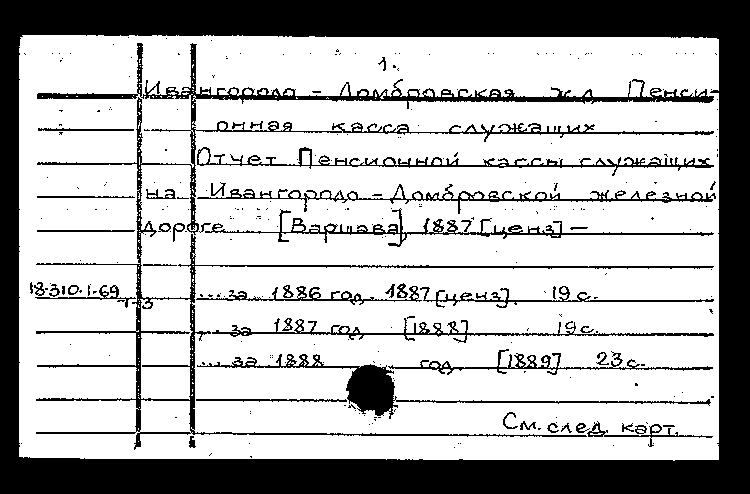 1.
Ивангородо - Домбровская ж.д. Пенси-
онная касса служащих
Отчет Пенсионной кассы служащих
на Ивангородо - Домбровской железной
дороге [Варшава], 1887 [ценз] —
18.310.1.69 1-3 ... за 1886 год. 1887 [ценз]. 19 с.
... за 1887 год [1888] 19 с.
... за 1888 год [1889] 23 с.
См. след. карт.